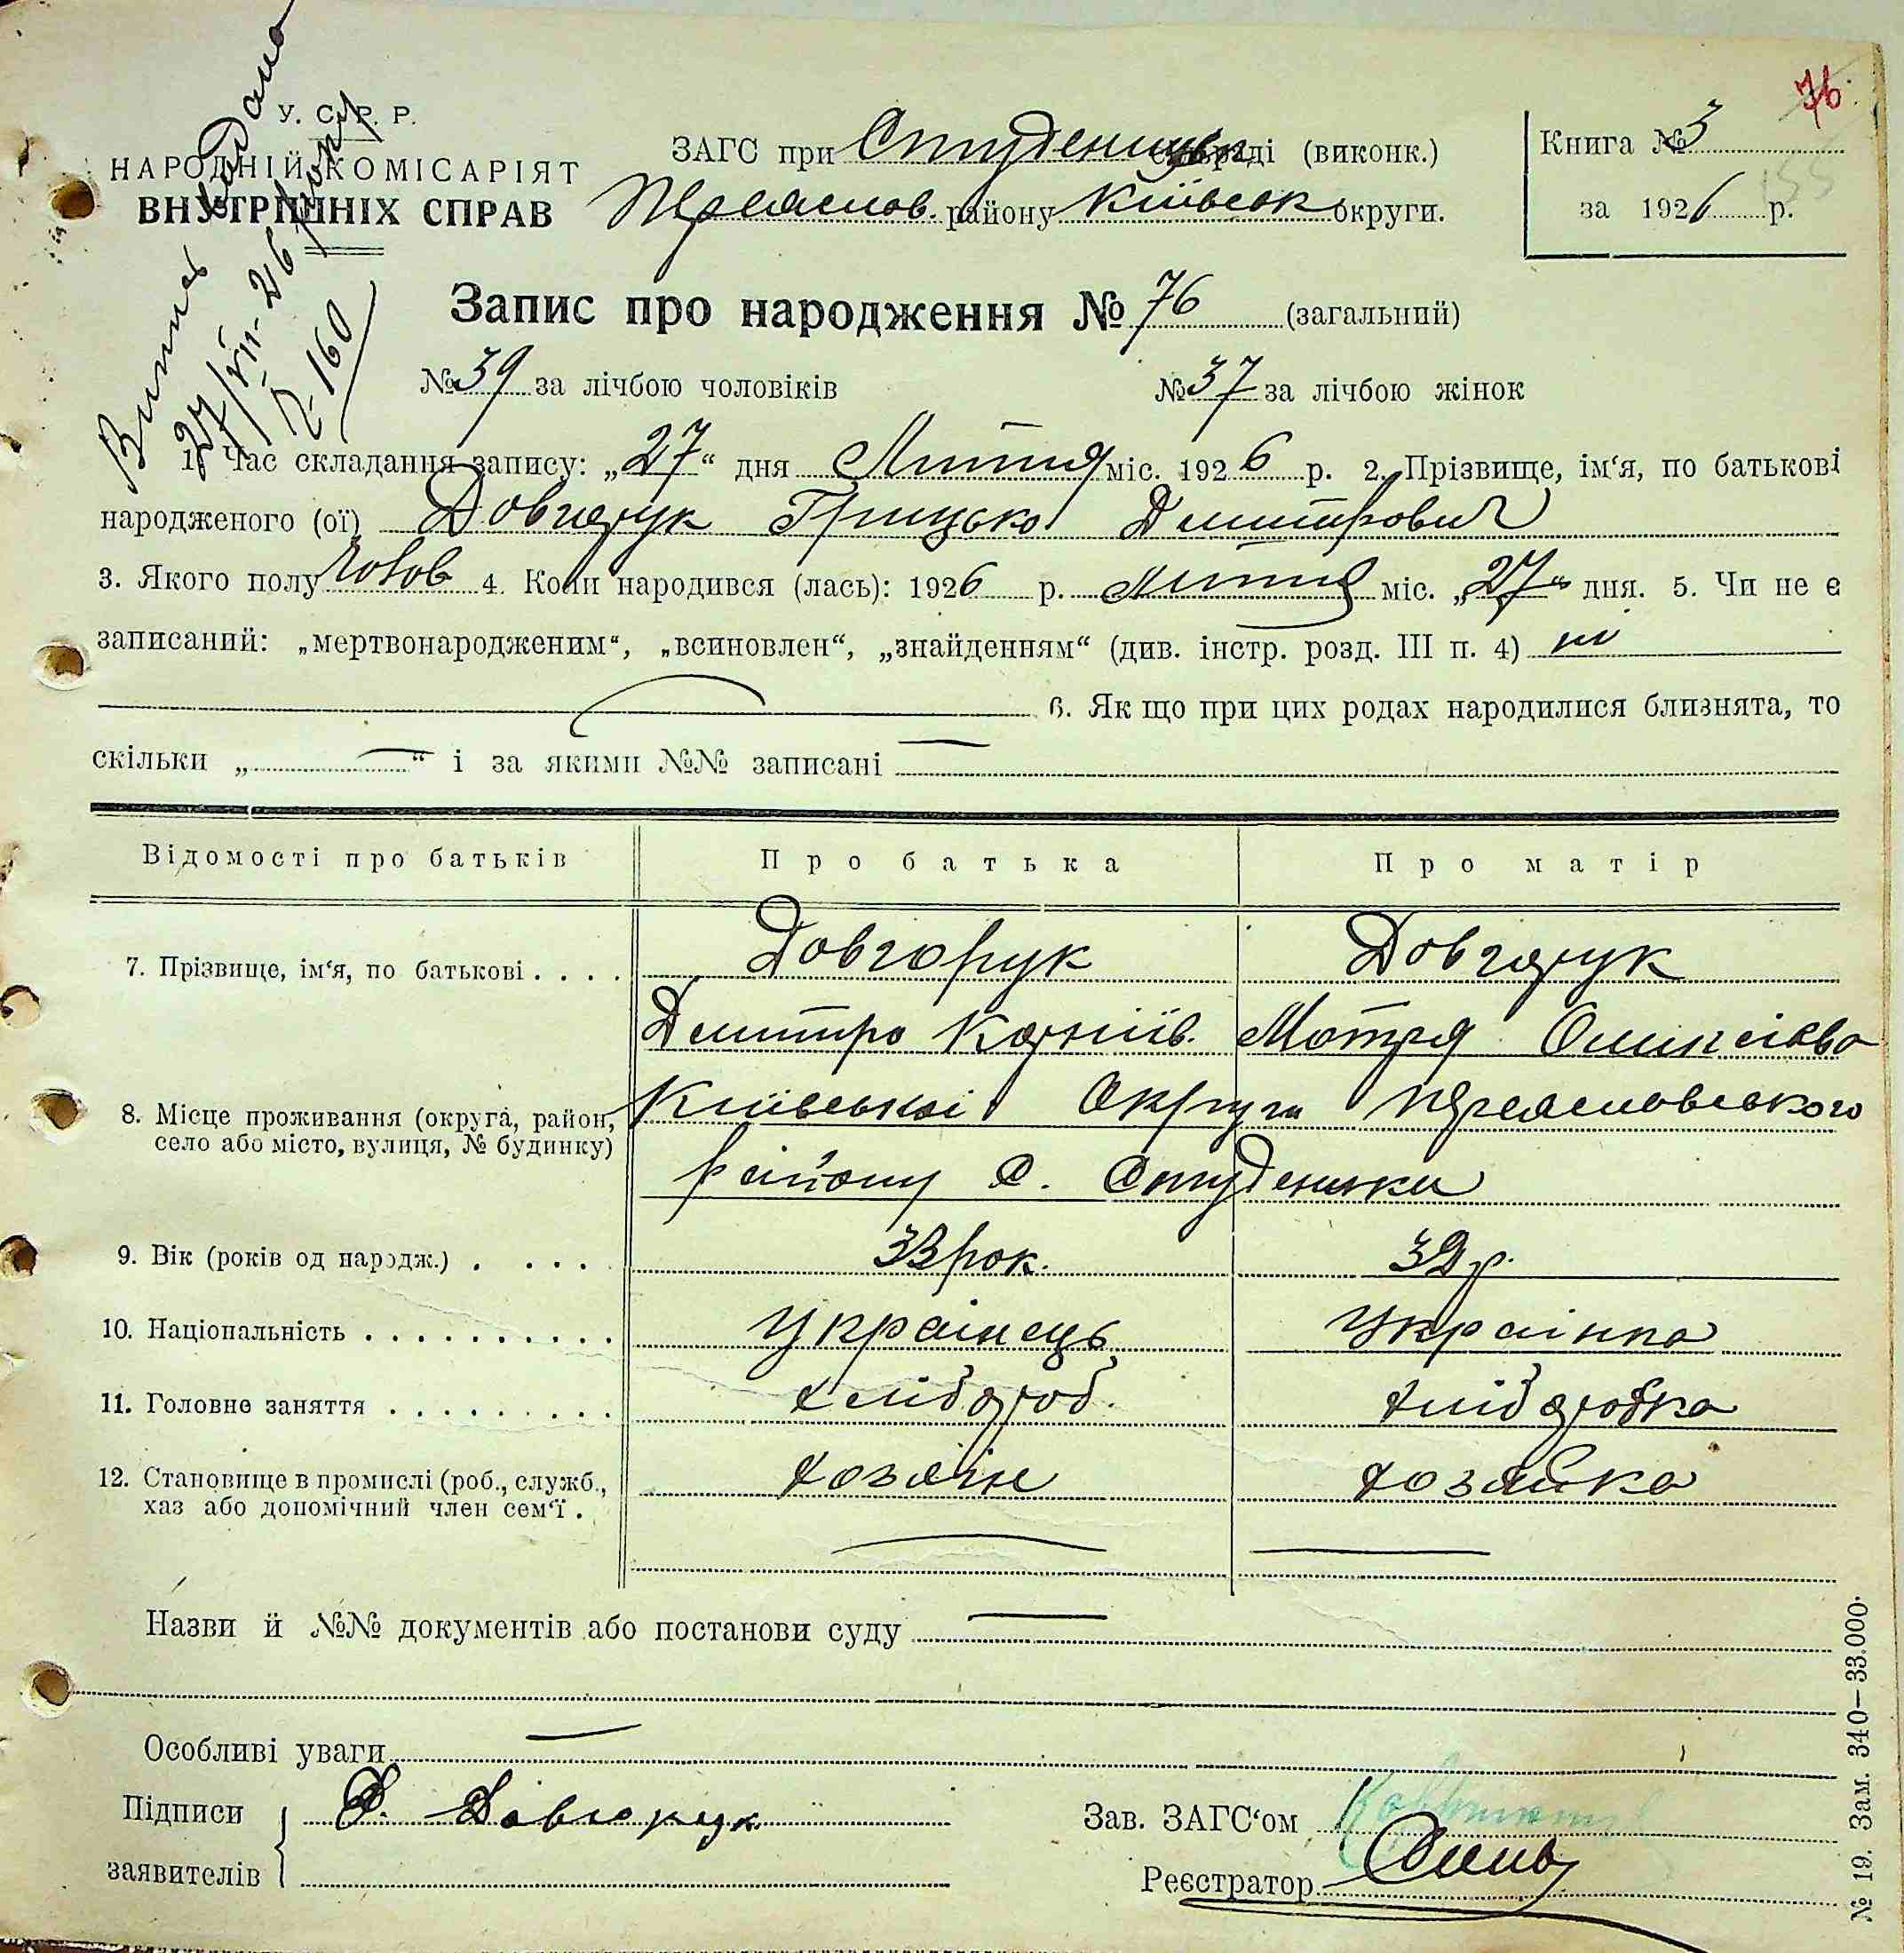 76
У. С. Р. Р.
НАРОДНІЙ КОМІСАРІЯТ
ВНУТРІШНІХ СПРАВ
Витяг видано
27/VII-26 року
№ 160
ЗАГС при Студениць сільраді (виконк.)
Переяслов. району Київськ округи.
Книга № 3
155
за 1926 р.
Запис про народження № 76 (загальний)
№ 39 за лічбою чоловіків № 37 за лічбою жінок
1. Час складання запису: „27“ дня Липня міс. 1926 р. 2. Прізвище, ім‘я, по батькові
народженого (ої) Довгорук Грицько Дмитрович
3. Якого полу чолов 4. Коли народився (лась): 1926 р. Липня міс. „27“ дня. 5. Чи не є
записаний: „мертвонародженим“, „всиновлен“, „знайденням“ (див. інстр. розд. III п. 4) ні
6. Як що при цих родах народилися близнята, то
скільки „ — “ і за якими №№ записані —
Відомості про батьків Про батька Про матір
7. Прізвище, ім‘я, по батькові . . . . Довгорук Довгорук
Дмитро Корніїв. Мотря
8. Місце проживання (округа, район, село або місто, вулиця, № будинку) Київської Округи Переясловського
району С. Студеники
9. Вік (років од народж.) . . . . . 33 рок. 32 р.
10. Національність . . . . . . . . . . . Українець Українка
11. Головне заняття . . . . . . . . . . хлібороб. хліборобка
12. Становище в промислі (роб., служб., хаз або допомічний член сем‘ї . хозяїн хозяйка
Назви й №№ документів або постанови суду —
Особливі уваги —
Підписи заявителів Д. Довгорук
Зав. ЗАГС‘ом
Реєстратор
№ 19. Зам. 340—33.000.